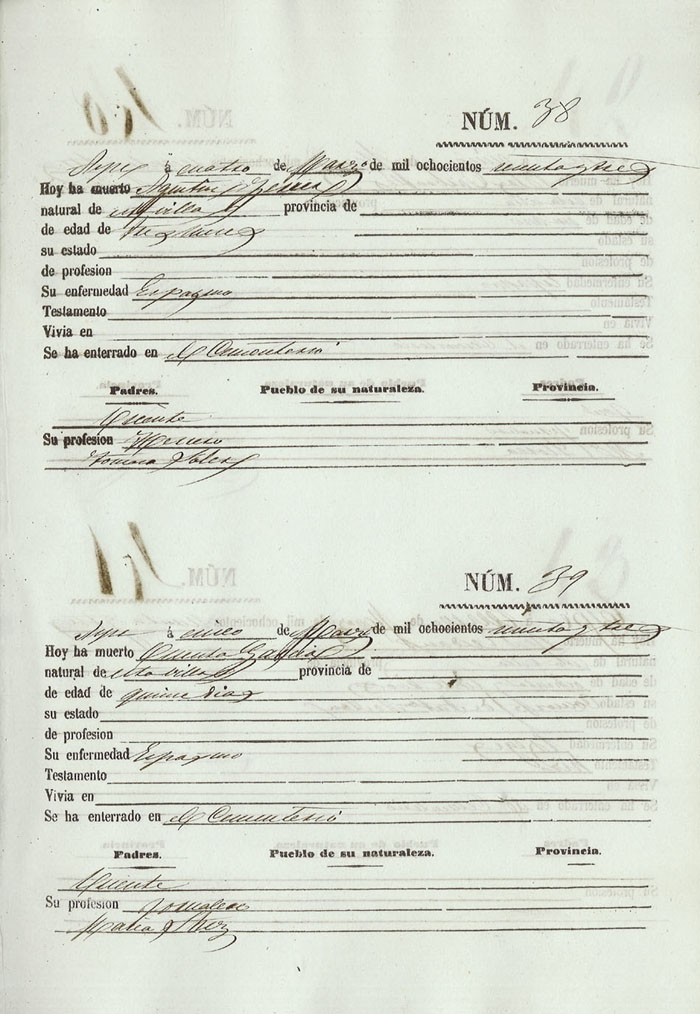 NÚM. 38
Yepes á cuatro de Marzo de mil ochocientos
Hoy ha muerto Agustin
natural de esta villa provincia de
de edad de tres
su estado
de profesion
Su enfermedad Espasmo
Testamento
Vivia en
Se ha enterrado en el Cementerio
Padres. Pueblo de su naturaleza. Provincia.
Vicente
Su profesion
NÚM. 39
Yepes á cinco de Marzo de mil ochocientos
Hoy ha muerto Garcia
natural de esta villa provincia de
de edad de quince dias
su estado
de profesion
Su enfermedad Espasmo
Testamento
Vivia en
Se ha enterrado en el Cementerio
Padres. Pueblo de su naturaleza. Provincia.
Vicente
Su profesion Jornalero
Maria